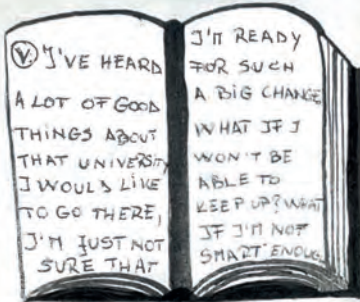 V. I'VE HEARD
A LOT OF GOOD
THINGS ABOUT
THAT UNIVERSITY
I WOULD LIKE
TO GO THERE,
I'M JUST NOT
SURE THAT
I'M READY
FOR SUCH
A BIG CHANGE
WHAT IF I
WON'T BE
ABLE TO
KEEP UP? WHAT
IF I'M NOT
SMART ENOUG